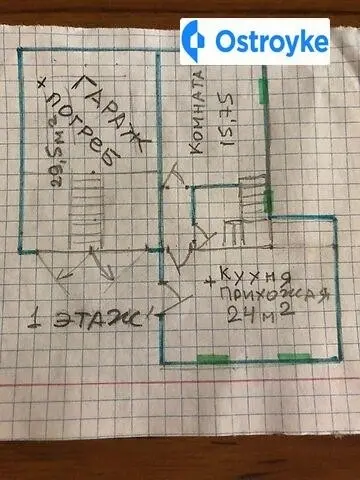 Ostroyke
ГАРАЖ
× ПОГРЕБ
29,5 м²
КОМНАТА
15,75
+ КУХНЯ
ПРИХОЖАЯ
24 м²
1 ЭТАЖ